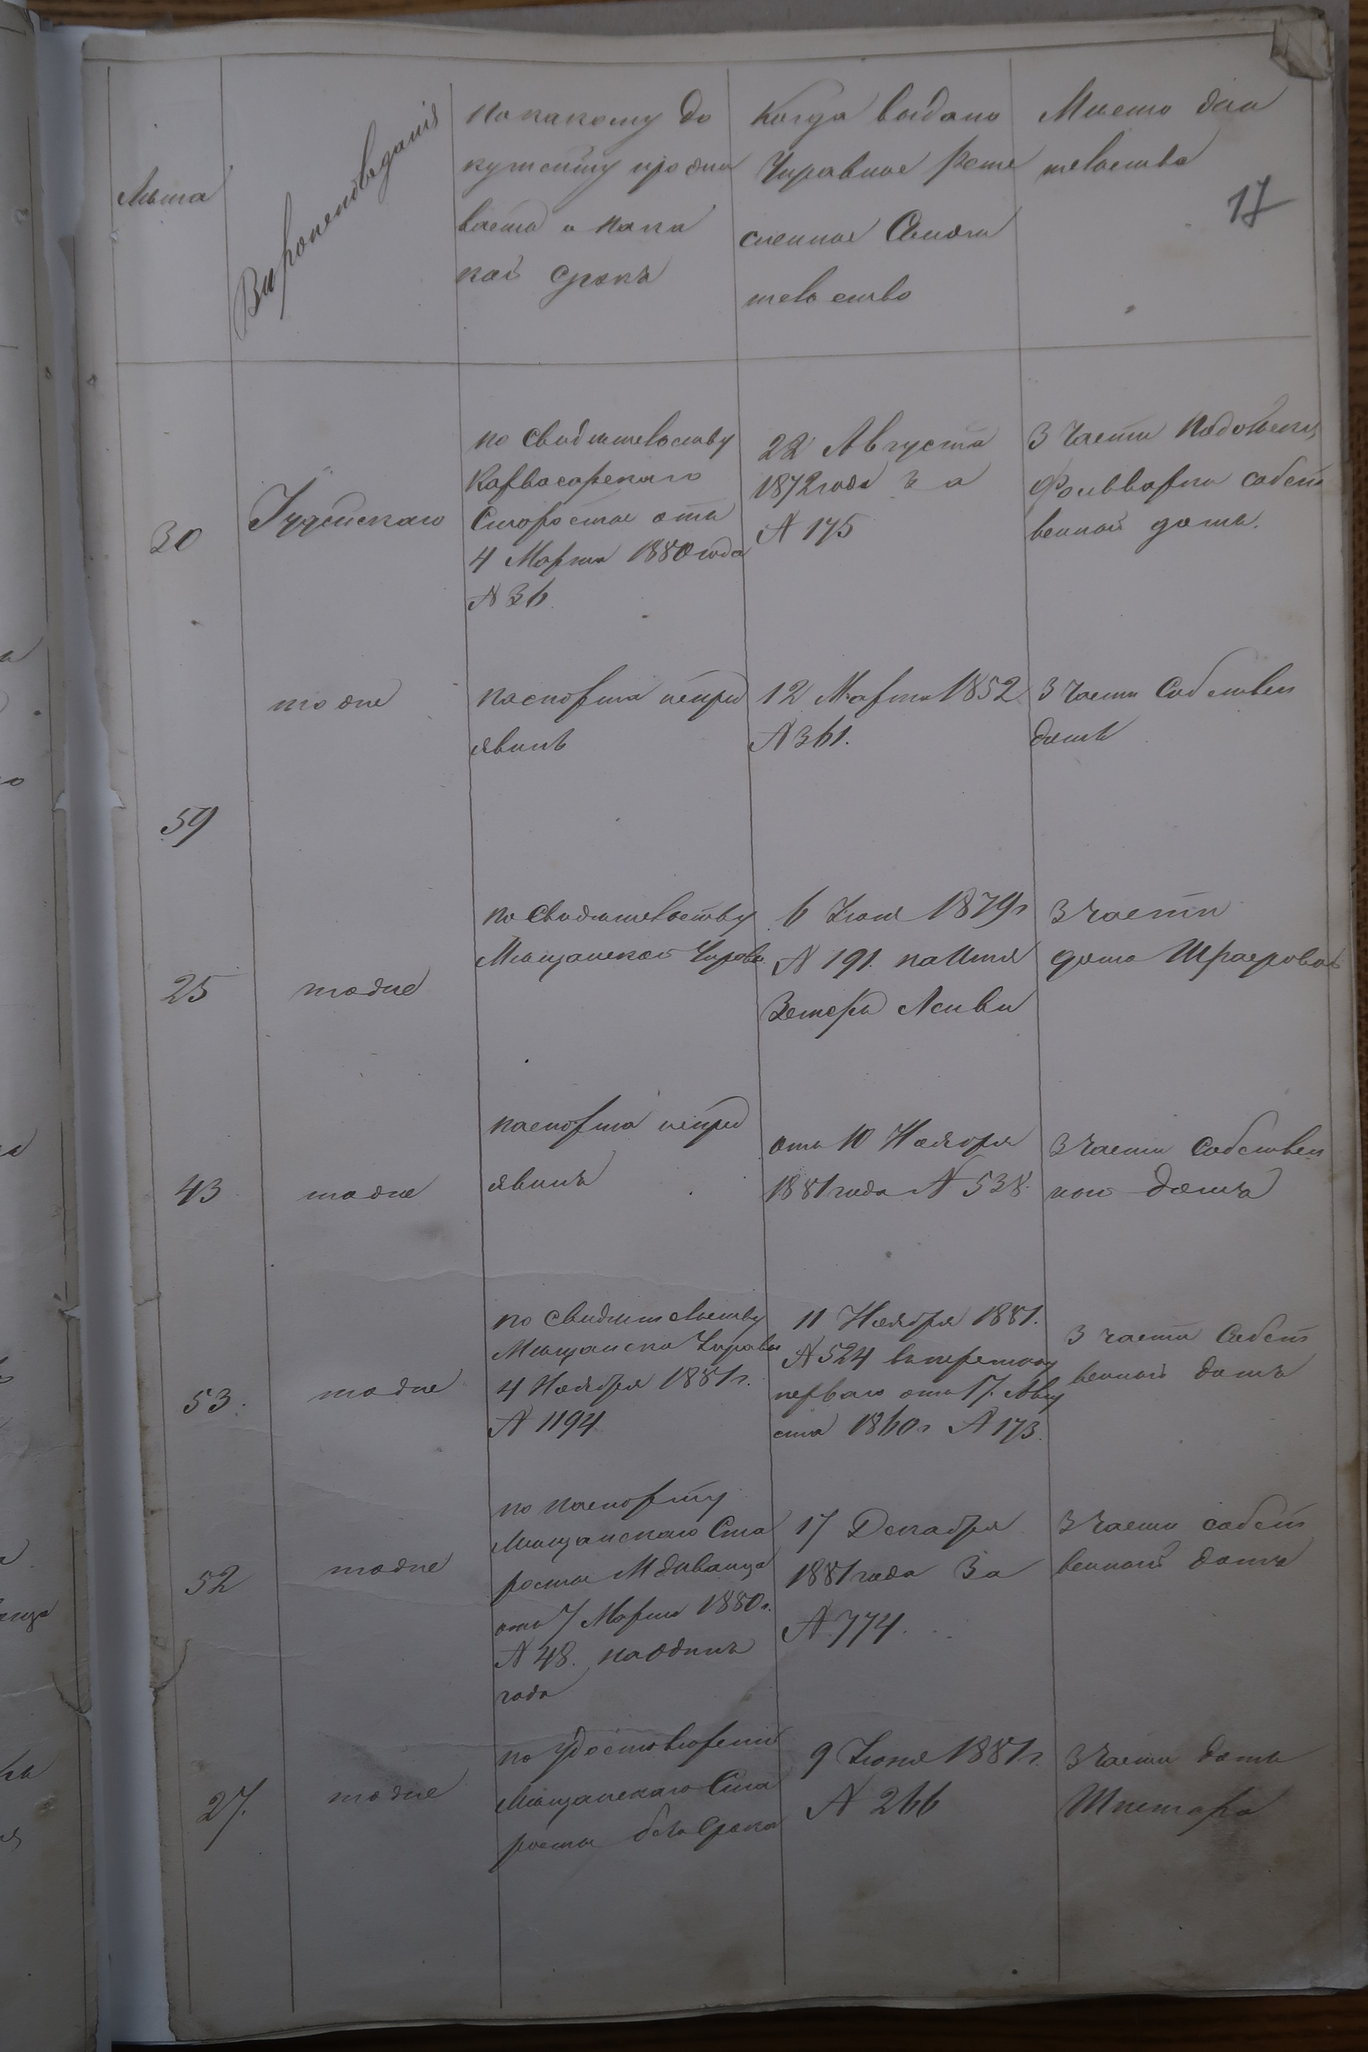 17
Лѣта
Вѣроисповѣданіе
По какому до
кументу прожи
ваетъ и на ка
кой срокъ
Когда выдано
Управное Реме
сленное Свидѣ
тельство
Мѣсто жи
тельства
30
Іудейскаго
по свидѣтельству
Карвасарскаго
Старосты отъ
4 Марта 1880 года
№ 36.
22 Августа
1872 года за
№ 175
3 части Подольскій
Фольварки собст
венной домъ.
59
тоже
паспорта непред
явилъ
12 Марта 1852
№ 361.
3 части Собствен
домъ
25
тоже
по свидѣтельству
Мѣщанской Управы
6 Іюня 1879 г
№ 191. на Имя
Лейви
3 части
домъ
43
тоже
паспорта непред
явилъ
отъ 10 Ноября
1881 года № 538.
3 части Собствен
ном домѣ
53.
тоже
по свидѣтельству
Мѣщанской Управы
4 Ноября 1881 г.
№ 1194
11 Ноября 1881.
№ 524 въ перемѣну
перваго отъ 17. Авгу
ста 1860 г № 173.
3 части Собст
венной домъ
52
тоже
по паспорту
Мѣщанскаго Ста
росты М Жванца
отъ 7 Марта 1880 г.
№ 48. на одинъ
годъ
17 Декабря
1881 года За
№ 774.
3 части собст
венной домъ
27.
тоже
по удостовѣренію
Мѣщанскаго Ста
росты безъ срока
9 Іюня 1881 г.
№ 266
3 части домъ